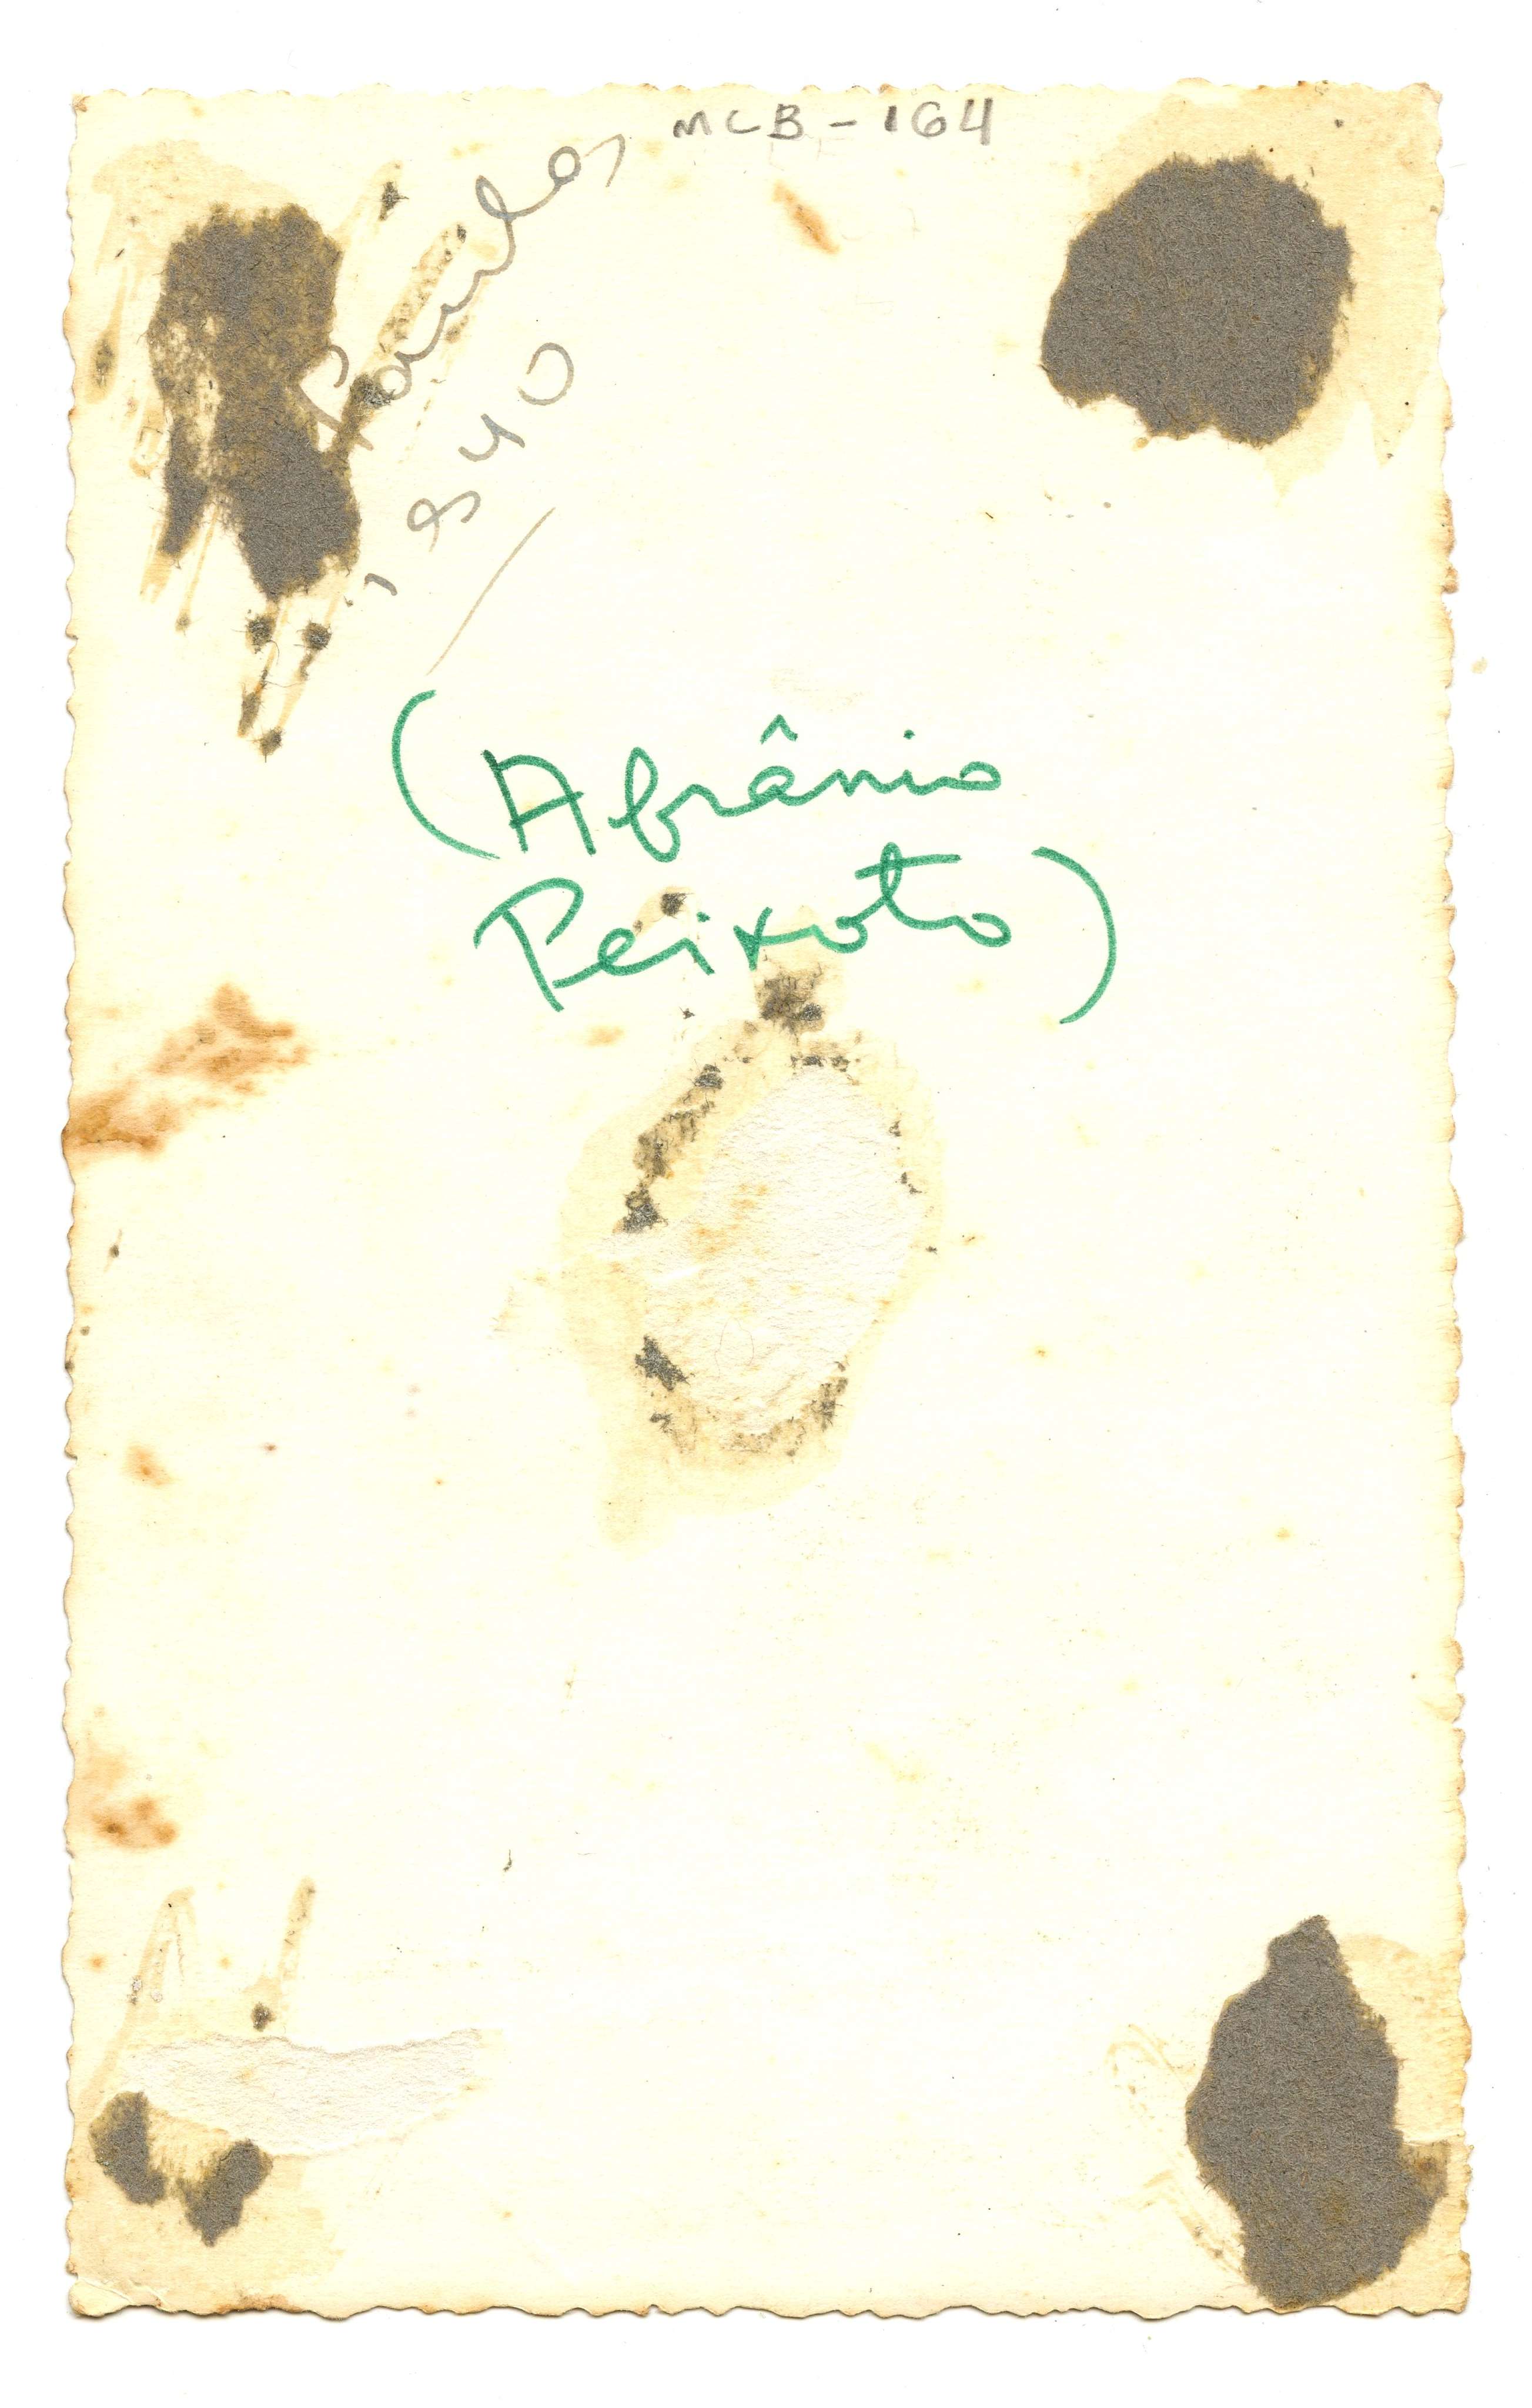 MCB-164
Paulo,
1940
(Afrânio
Peixoto)